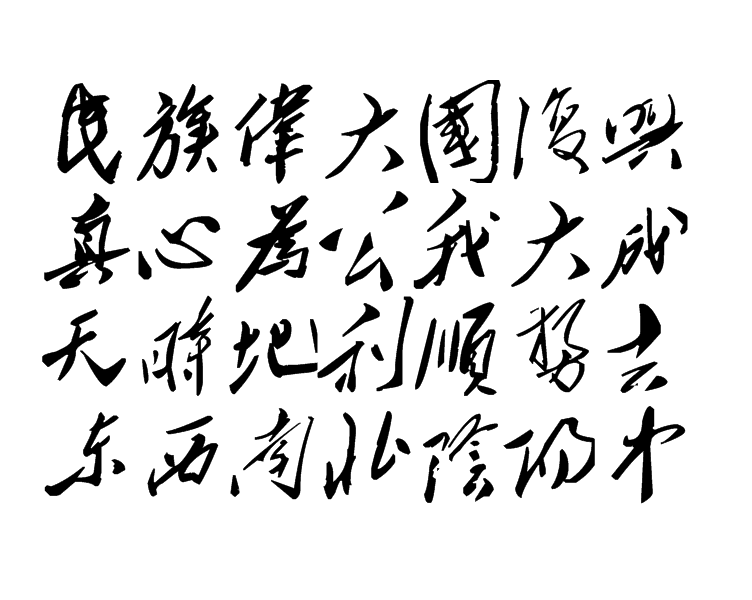 民族偉大國復興
真心為公我大成
天時地利順勢去
东西南北陰阳中